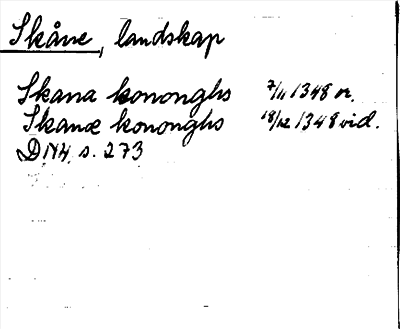 Skåne, landskap
Skana kononghs 7/11 1348 or.
Skanæ kononghs 18/12 1348 vid.
DN4, s. 273